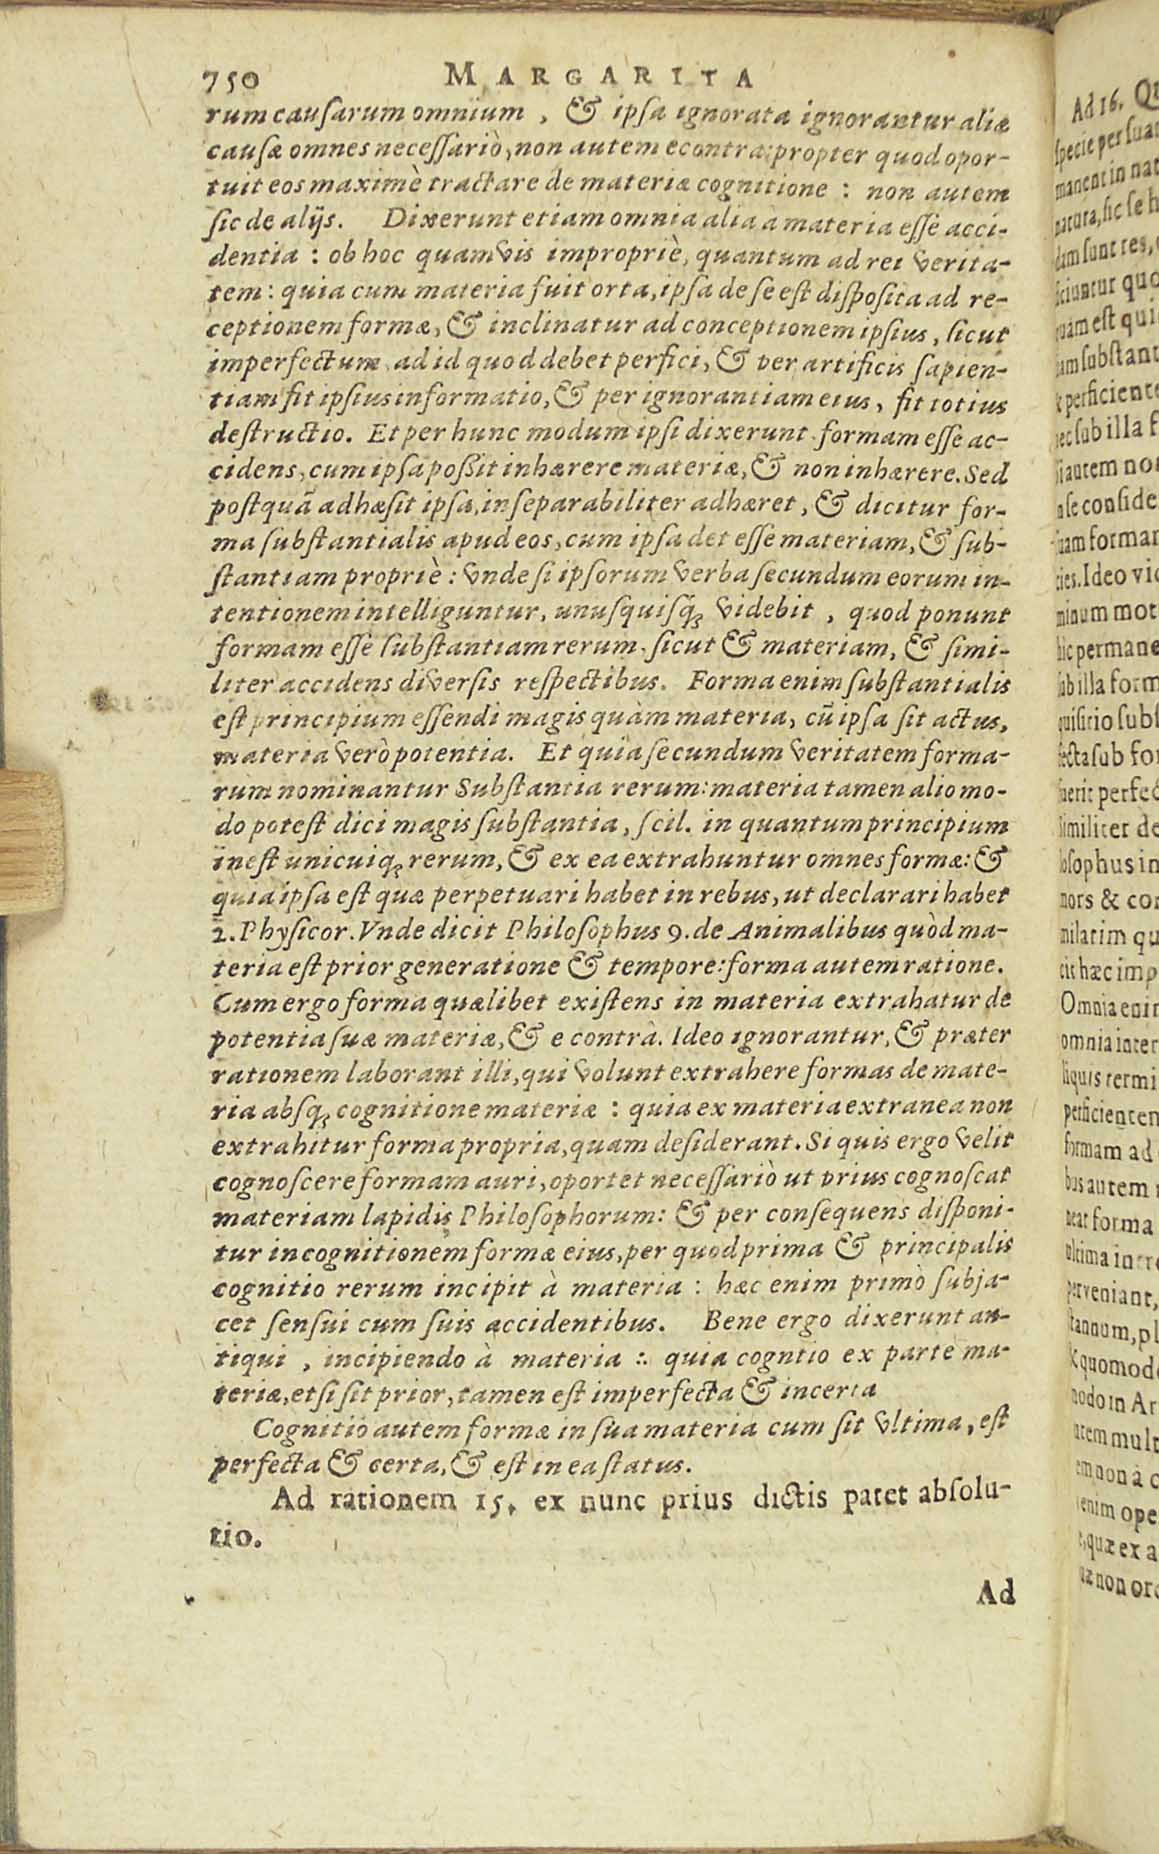 750 MARGARITA
rum causarum omnium, & ipsa ignorata ignorantur aliæ
causæ omnes necessariò, non autem econtra: propter quod opor-
tuit eos maximè tractare de materiæ cognitione : non autem
sic de alijs. Dixerunt etiam omnia alia à materia esse acci-
dentia : ob hoc quamvis impropriè, quantum ad rei verita-
tem: quia cum materia fuit orta, ipsa de se est disposita ad re-
ceptionem formæ, & inclinatur ad conceptionem ipsius, sicut
imperfectum ad id quod debet perfici, & per artificis sapien-
tiam fit ipsius informatio, & per ignorantiam eius, fit totius
destructio. Et per hunc modum ipsi dixerunt formam esse ac-
cidens, cum ipsa possit inhærere materiæ, & non inhærere. Sed
postquã adhæsit ipsa, inseparabiliter adhæret, & dicitur for-
ma substantialis apud eos, cum ipsa det esse materiam, & sub-
stantiam propriè: vnde si ipsorum verba secundum eorum in-
tentionem intelliguntur, unusquisq; videbit, quod ponunt
formam esse substantiam rerum, sicut & materiam, & simi-
liter accidens diversis respectibus. Forma enim substantialis
est principium essendi magis quàm materia, cũ ipsa sit actus,
materia verò potentia. Et quia secundum veritatem forma-
rum nominantur Substantia rerum: materia tamen alio mo-
do potest dici magis substantia, scil. in quantum principium
inest unicuiq; rerum, & ex ea extrahuntur omnes formæ: &
quia ipsa est quæ perpetuari habet in rebus, ut declarari habet
2. Physicor. Vnde dicit Philosophus 9. de Animalibus quòd ma-
teria est prior generatione & tempore: forma autem ratione.
Cum ergo forma quælibet existens in materia extrahatur de
potentia suæ materiæ, & e contrà. Ideo ignorantur, & præter
rationem laborant illi, qui volunt extrahere formas de mate-
ria absq; cognitione materiæ : quia ex materia extranea non
extrahitur forma propria, quam desiderant. Si quis ergo velit
cognoscere formam auri, oportet necessariò ut prius cognoscat
materiam lapidis Philosophorum: & per consequens disponi-
tur in cognitionem formæ eius, per quod prima & principalis
cognitio rerum incipit à materia : hæc enim primò subja-
cet sensui cum suis accidentibus. Bene ergo dixerunt an-
tiqui, incipiendo à materia : quia cogntio ex parte ma-
teriæ, etsi sit prior, tamen est imperfecta & incerta
Cognitio autem formæ in sua materia cum sit vltima, est
perfecta & certa, & est in ea status.
Ad rationem 15. ex nunc prius dictis patet absolu-
tio.
Ad
Ad 16.
specie per
manent in
natura, sic se
dam sunt res,
quam est
perficiente
sub illa
autem
se conside
formam
Ideo
minum
permane
sub illa form
sub
sub
perfec
Similiter de
losophus in
mors & cor
hæc imp
Omnia enim
omnia inter
perficientem
formam ad
bus autem
forma
ultima
perveniant,
stannum, pl
quomodo
in Ar
mult
non à c
enim ope
quæ ex a
non